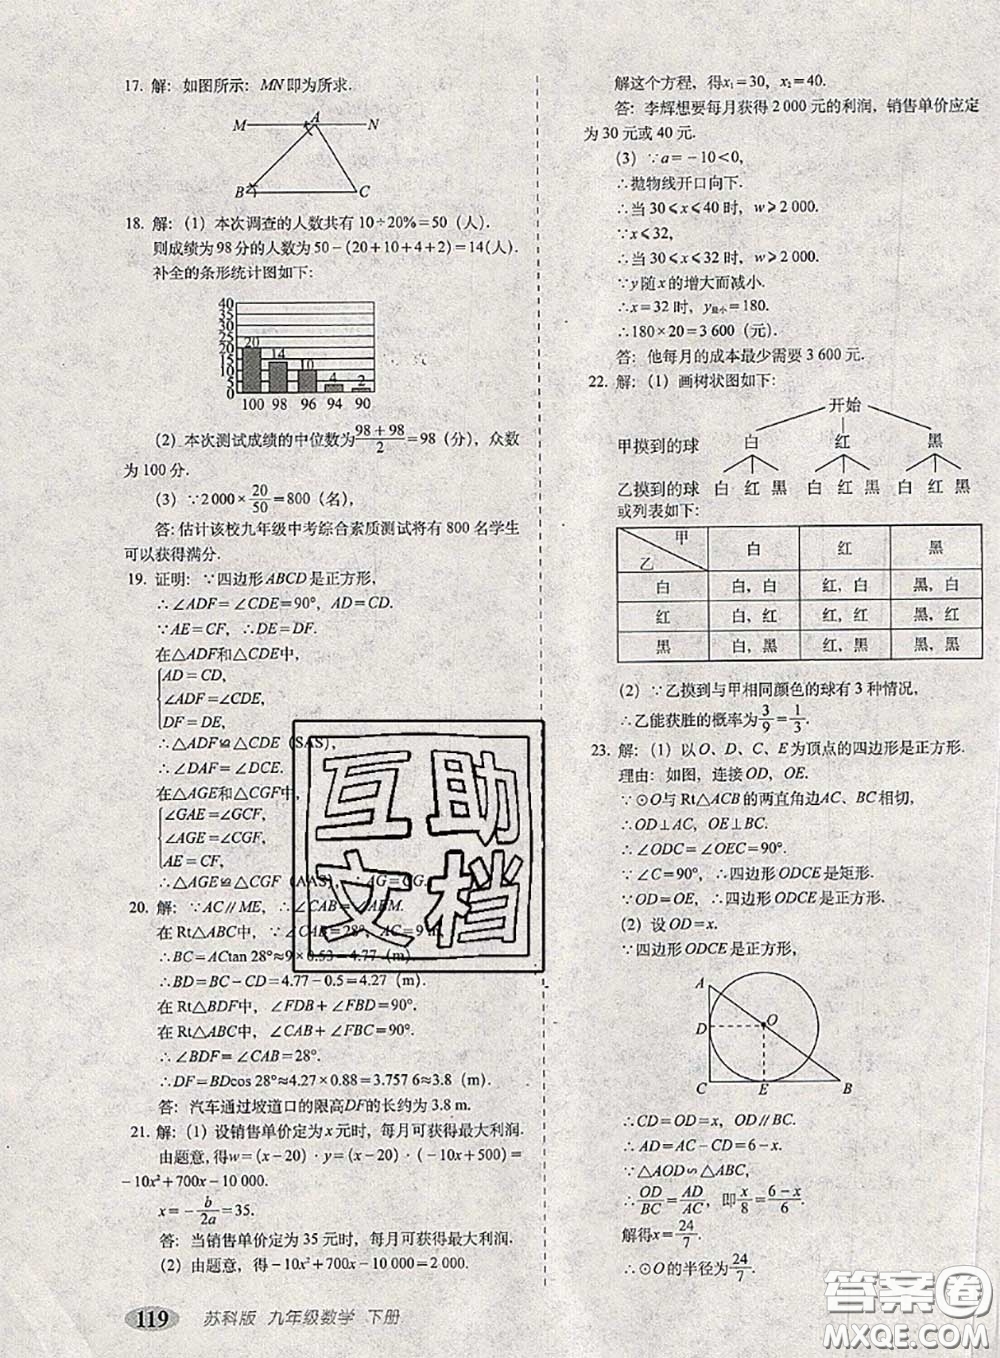 17. 解：如图所示：MN即为所求.
M A N
B C
18. 解：(1) 本次调查的人数共有 10÷20%=50（人）.
则成绩为98分的人数为50-(20+10+4+2)=14(人).
补全的条形统计图如下：
40
35
30
25
20
15
10
5
0
20 14 10 4 2
100 98 96 94 90
(2) 本次测试成绩的中位数为(98+98)/2=98（分），众数
为 100 分.
(3) ∵2 000×20/50=800（名），
答: 估计该校九年级中考综合素质测试将有 800 名学生
可以获得满分.
19. 证明：∵四边形ABCD是正方形，
∴∠ADF=∠CDE=90°，AD=CD.
∵AE=CF，∴DE=DF.
在△ADF和△CDE中，
AD=CD,
∠ADF=∠CDE,
DF=DE,
∴△ADF≌△CDE（SAS），
∴∠DAF=∠DCE.
在△AGE和△CGF中，
∠GAE=∠GCF,
∠AGE=∠CGF,
AE=CF,
∴△AGE≌△CGF（AAS），∴AG=CG.
20. 解：∵AC∥ME，∴∠CAB=∠ABM.
在Rt△ABC中，∵∠CAB=28°，AC=9 m，
∴BC=ACtan 28°≈9×0.53=4.77（m）.
∴BD=BC-CD=4.77-0.5=4.27（m）.
在Rt△BDF中，∠FDB+∠FBD=90°.
在Rt△ABC中，∠CAB+∠FBD=90°.
∴∠BDF=∠CAB=28°.
∴DF=BDcos 28°≈4.27×0.88=3.757 6≈3.8（m）.
答：汽车通过坡道口的限高DF的长约为3.8 m.
21. 解：(1) 设销售单价定为x元时，每月可获得最大利润.
由题意,得w=(x-20)·y=(x-20)·(-10x+500)=
-10x²+700x-10 000.
x=-b/2a=35.
答：当销售单价定为 35 元时，每月可获得最大利润.
(2) 由题意，得-10x²+700x-10 000=2 000.
119 苏科版 九年级数学 下册
解这个方程，得x₁=30，x₂=40.
答：李辉想要每月获得 2 000 元的利润，销售单价应定
为 30 元或 40 元.
(3) ∵a=-10<0，
∴抛物线开口向下.
∴当 30⩽x⩽40 时，w⩾2 000.
∵x⩽32，
∴当 30⩽x⩽32 时，w⩾2 000.
∵y 随x的增大而减小.
∴x=32 时，y最小=180.
∴180×20=3 600（元）.
答：他每月的成本最少需要 3 600 元.
22. 解：(1) 画树状图如下：
开始
甲摸到的球 白 红 黑
乙摸到的球 白 红 黑 白 红 黑 白 红 黑
或列表如下：
甲 乙 白 红 黑
白 白，白 红，白 黑，白
红 白，红 红，红 黑，红
黑 白，黑 红，黑 黑，黑
(2) ∵乙摸到与甲相同颜色的球有 3 种情况，
∴乙能获胜的概率为3/9=1/3.
23. 解：(1) 以O、D、C、E为顶点的四边形是正方形.
理由：如图，连接OD，OE.
∵⊙O与 Rt△ACB的两直角边AC、BC相切，
∴OD⊥AC，OE⊥BC.
∴∠ODC=∠OEC=90°.
∵∠C=90°，∴四边形ODCE是矩形.
∵OD=OE，∴四边形ODCE是正方形.
(2) 设OD=x.
∵四边形ODCE是正方形，
A
D O
C E B
∴CD=OD=x，OD∥BC.
∴AD=AC-CD=6-x.
∵△AOD∽△ABC，
∴OD/BC=AD/AC，即x/8=(6-x)/6.
解得x=24/7.
∴⊙O的半径为24/7.
互助
文档
答案卷
MXQE.COM